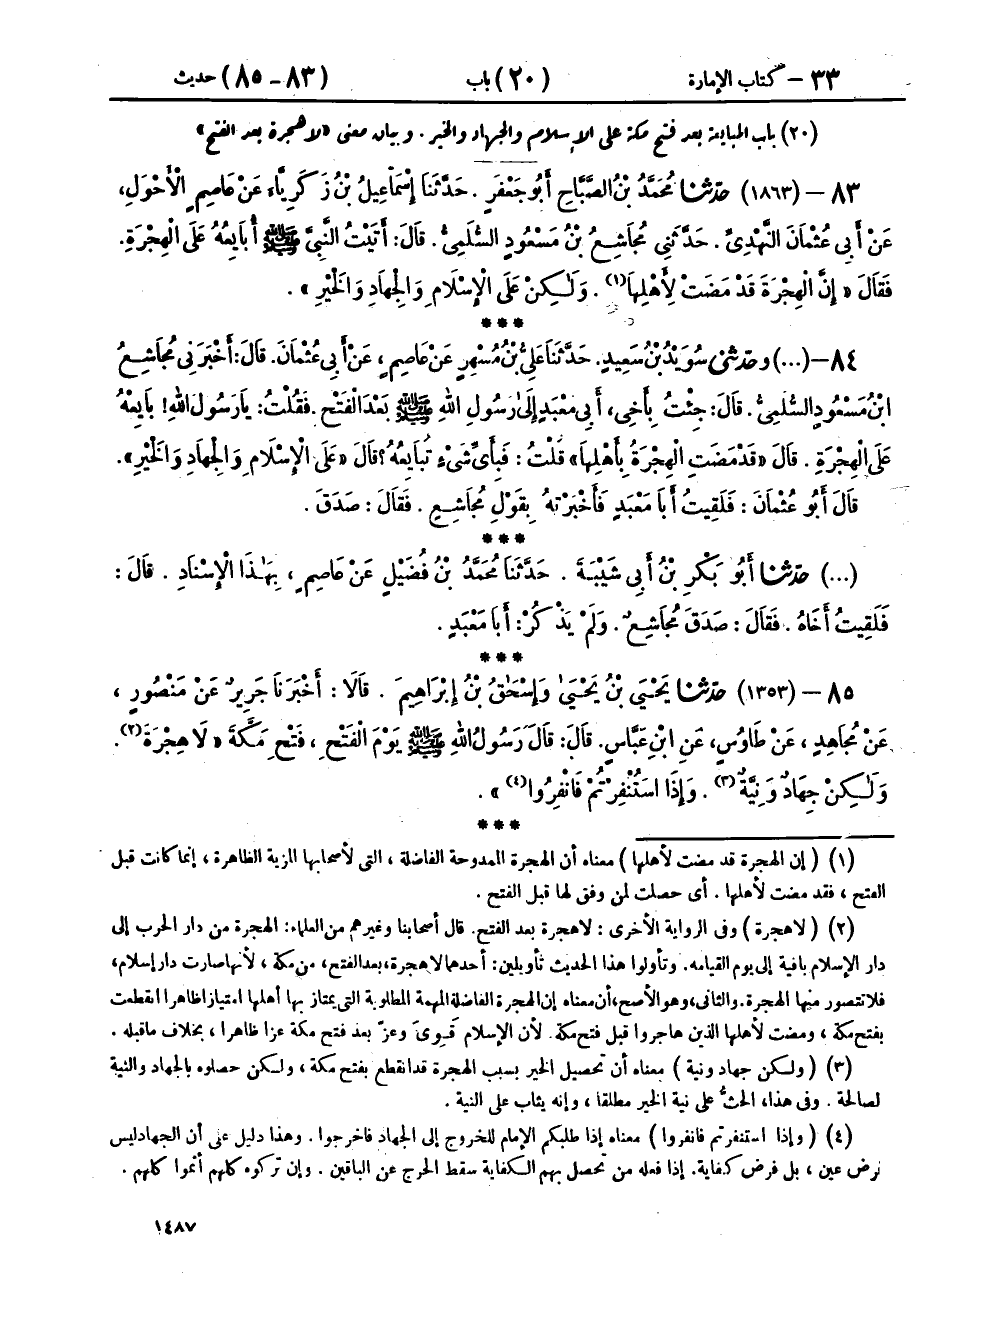 ٣٣ - كتاب الإمارة (٢٠) باب (٨٣ - ٨٥) حديث
(٢٠) باب المبايعة بعد فتح مكة على الإسلام والجهاد والخير . وبيان معنى «لا هجرة بعد الفتح»
٨٣ - (١٨٦٣) حَدَّثَنَا مُحَمَّدُ بْنُ الصَّبَّاحِ أَبُو جَعْفَرٍ . حَدَّثَنَا إِسْمَاعِيلُ بْنُ زَكَرِيَّاءَ عَنْ عَاصِمٍ الْأَحْوَلِ،
عَنْ أَبِي عُثْمَانَ النَّهْدِيِّ . حَدَّثَنِي مُجَاشِعُ بْنُ مَسْعُودٍ السُّلَمِيُّ . قَالَ: أَتَيْتُ النَّبِيَّ ﷺ أُبَايِعُهُ عَلَى الْهِجْرَةِ.
فَقَالَ « إِنَّ الْهِجْرَةَ قَدْ مَضَتْ لِأَهْلِهَا(١) . وَلَـٰكِنْ عَلَى الْإِسْلَامِ وَالْجِهَادِ وَالْخَيْرِ » .
***
٨٤ - (...) وحَدَّثَنِي سُوَيْدُ بْنُ سَعِيدٍ. حَدَّثَنَا عَلِيُّ بْنُ مُسْهِرٍ عَنْ عَاصِمٍ ، عَنْ أَبِي عُثْمَانَ. قَالَ: أَخْبَرَنِي مُجَاشِعُ
ابْنُ مَسْعُودٍ السُّلَمِيُّ . قَالَ: جِئْتُ بِأَخِي، أَبِي مَعْبَدٍ إِلَى رَسُولِ اللهِ ﷺ بَعْدَ الْفَتْحِ . فَقُلْتُ: يَا رَسُولَ اللهِ! بَايِعْهُ
عَلَى الْهِجْرَةِ . قَالَ «قَدْ مَضَتِ الْهِجْرَةُ بِأَهْلِهَا» قُلْتُ : فَبِأَيِّ شَيْءٍ تُبَايِعُهُ؟ قَالَ «عَلَى الْإِسْلَامِ وَالْجِهَادِ وَالْخَيْرِ».
قَالَ أَبُو عُثْمَانَ : فَلَقِيتُ أَبَا مَعْبَدٍ فَأَخْبَرْتُهُ بِقَوْلِ مُجَاشِعٍ . فَقَالَ : صَدَقَ .
***
(...) حَدَّثَنَا أَبُو بَكْرِ بْنُ أَبِي شَيْبَةَ . حَدَّثَنَا مُحَمَّدُ بْنُ فُضَيْلٍ عَنْ عَاصِمٍ ، بِهَـٰذَا الْإِسْنَادِ . قَالَ :
فَلَقِيتُ أَخَاهُ . فَقَالَ : صَدَقَ مُجَاشِعٌ . وَلَمْ يَذْكُرْ : أَبَا مَعْبَدٍ .
***
٨٥ - (١٣٥٣) حَدَّثَنَا يَحْيَىٰ بْنُ يَحْيَىٰ وَإِسْحَٰقُ بْنُ إِبْرَاهِيمَ . قَالَا : أَخْبَرَنَا جَرِيرٌ عَنْ مَنْصُورٍ ،
عَنْ مُجَاهِدٍ ، عَنْ طَاوُسٍ، عَنِ ابْنِ عَبَّاسٍ. قَالَ: قَالَ رَسُولُ اللهِ ﷺ يَوْمَ الْفَتْحِ ، فَتْحِ مَكَّةَ « لَا هِجْرَةَ(٢) .
وَلَـٰكِنْ جِهَادٌ وَنِيَّةٌ(٣) . وَإِذَا اسْتُنْفِرْتُمْ فَانْفِرُوا(٤) » .
***
(١) ( إن الهجرة قد مضت لأهلها ) معناه أن الهجرة الممدوحة الفاضلة ، التى لأصحابها المزية الظاهرة ، إنما كانت قبل
الفتح ، فقد مضت لأهلها . أى حصلت لمن وفق لها قبل الفتح .
(٢) ( لا هجرة ) وفى الرواية الأخرى : لا هجرة بعد الفتح. قال أصحابنا وغيرهم من العلماء: الهجرة من دار الحرب إلى
دار الإسلام باقية إلى يوم القيامة. وتأولوا هذا الحديث تأويلين: أحدهما لا هجرة، بعد الفتح، من مكة ، لأنها صارت دار إسلام،
فلا تتصور منها الهجرة. والثانى، وهو الأصح، أن معناه إن الهجرة الفاضلة المهمة المطلوبة التى يمتاز بها أهلها امتيازا ظاهرا انقطعت
بفتح مكة ، ومضت لأهلها الذين هاجروا قبل فتح مكة. لأن الإسلام قَوِىَ وعزّ بعد فتح مكة عزا ظاهرا ، بخلاف ماقبله .
(٣) ( ولكن جهاد ونية ) معناه أن تحصيل الخير بسبب الهجرة قد انقطع بفتح مكة ، ولكن حصلوه بالجهاد والنية
لصالحة . وفى هذا، الحثُّ على نية الخير مطلقا ، وإنه يثاب على النية .
(٤) ( وإذا استنفرتم فانفروا ) معناه إذا طلبكم الإمام للخروج إلى الجهاد فاخرجوا . وهذا دليل على أن الجهاد ليس
فرض عين ، بل فرض كفاية. إذا فعله من تحصل بهم الكفاية سقط الحرج عن الباقين . وإن تركوه كلهم أثموا كلهم .
١٤٨٧